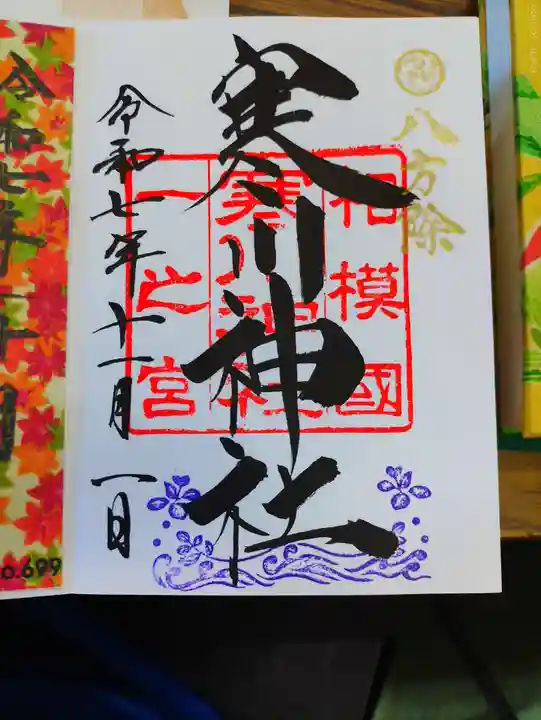 八方除
寒川神社
相模國
寒川神社
一之宮
令和七年十一月一日
令和七年十一月
o.699